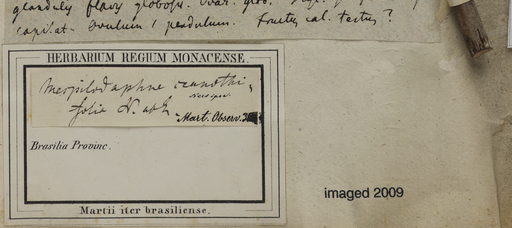 glandulis flavis globosis. Ovar. glob.
capitat. Ovulum 1 pendulum. Fructus cal. tectus?
HERBARIUM REGIUM MONACENSE.
Mespilodaphne ceanothi-
folia N. ab E.
Mart. Observ.
Brasilia Provinc.
Martii iter brasiliense.
imaged 2009